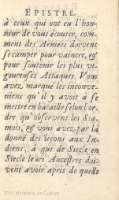 EPISTRE.
à ceux qui ont eu l'hon-
neur de vous écouter, com-
ment des Armées doivent
se camper pour vaincre, et
pour soutenir les plus vi-
goureuses Attaques. Vous
avez, marqué les inconve-
niens qu'il y avoit à se
mettre en bataille selon l'or-
dre qu'observent les
mois, et vous avez par là
donné des leçons aux In-
diens, à qui de Siecle en
Siecle leurs Ancestres
vent avoir apris de quelle